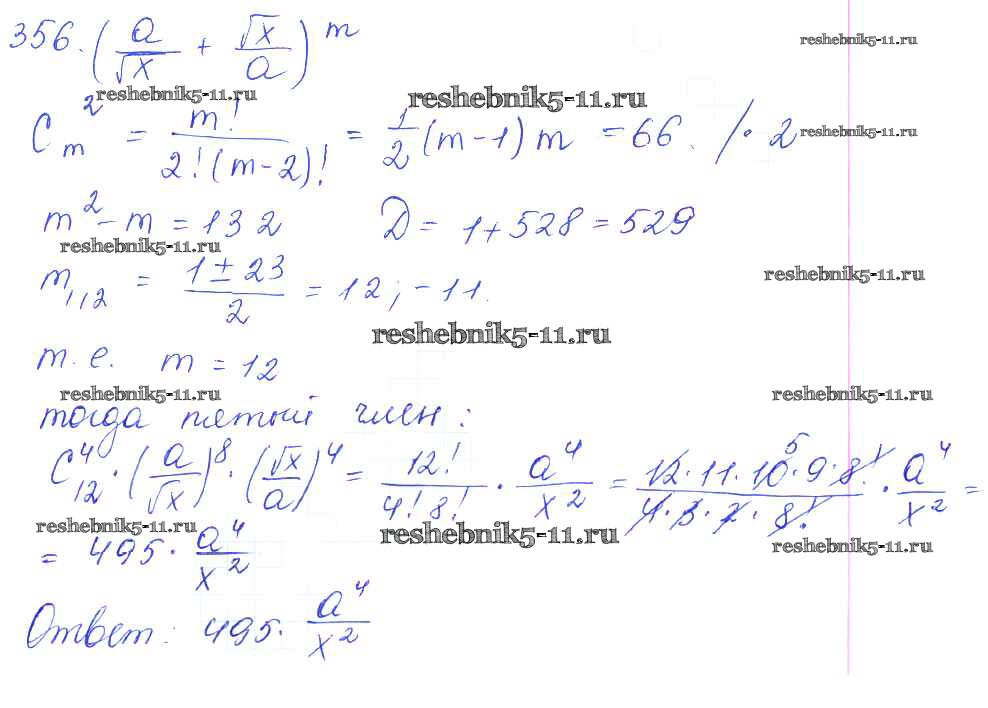 356. (a/√x + √x/a)^m
reshebnik5-11.ru
reshebnik5-11.ru
reshebnik5-11.ru
C_m^2 = m!/(2!(m-2)!) = 1/2 (m-1) m = 66. /· 2
reshebnik5-11.ru
m^2 - m = 132 D = 1+528 = 529
reshebnik5-11.ru
m_1,2 = (1 ± 23)/2 = 12; -11.
reshebnik5-11.ru
reshebnik5-11.ru
т.е. m = 12
reshebnik5-11.ru
reshebnik5-11.ru
тогда пятый член:
C_12^4 · (a/√x)^8 · (√x/a)^4 = 12!/(4! 8!) · a^4/x^2 = (12·11·10·9·8!)/(4·3·2·8!) · a^4/x^2 =
reshebnik5-11.ru
reshebnik5-11.ru
reshebnik5-11.ru
= 495 · a^4/x^2
Ответ: 495 · a^4/x^2